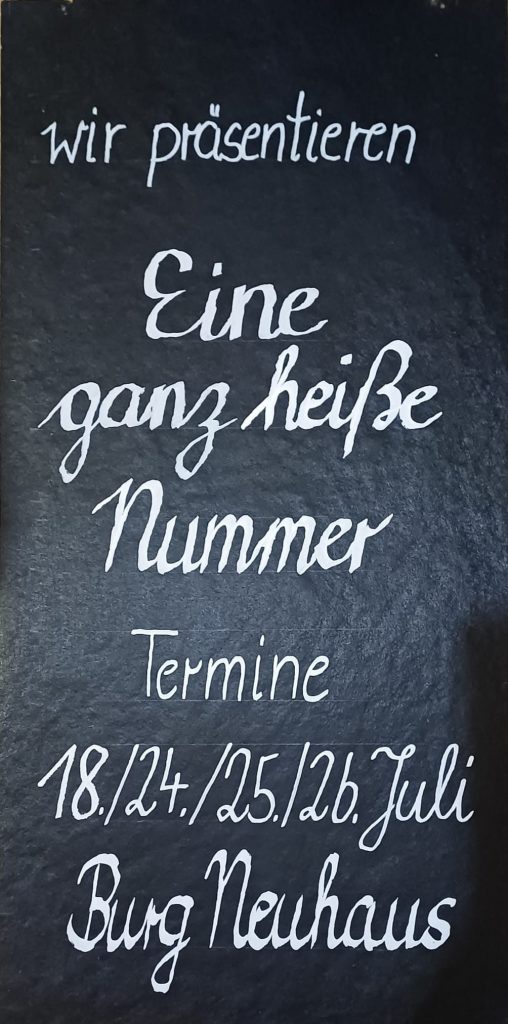 wir präsentieren
Eine
ganz heiße
Nummer
Termine
18./24./25./26. Juli
Burg Neuhaus